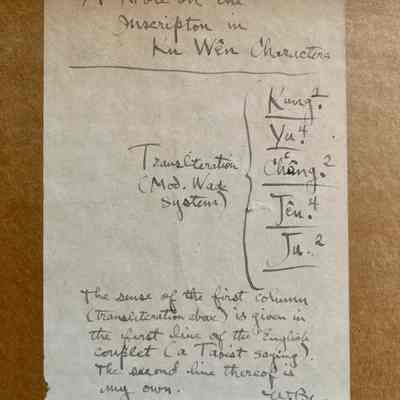 A Note on the
Inscripton in
Ku Wên Characters
Transliteration
(Mod. Wade
System)
Kung².
Yu.⁴
Ch‘âng.²
Jên.⁴
Ju.²
The sense of the first column
(transliteration above) is given in
the first line of the English
couplet (a Taoist saying).
The second line thereof is
my own.